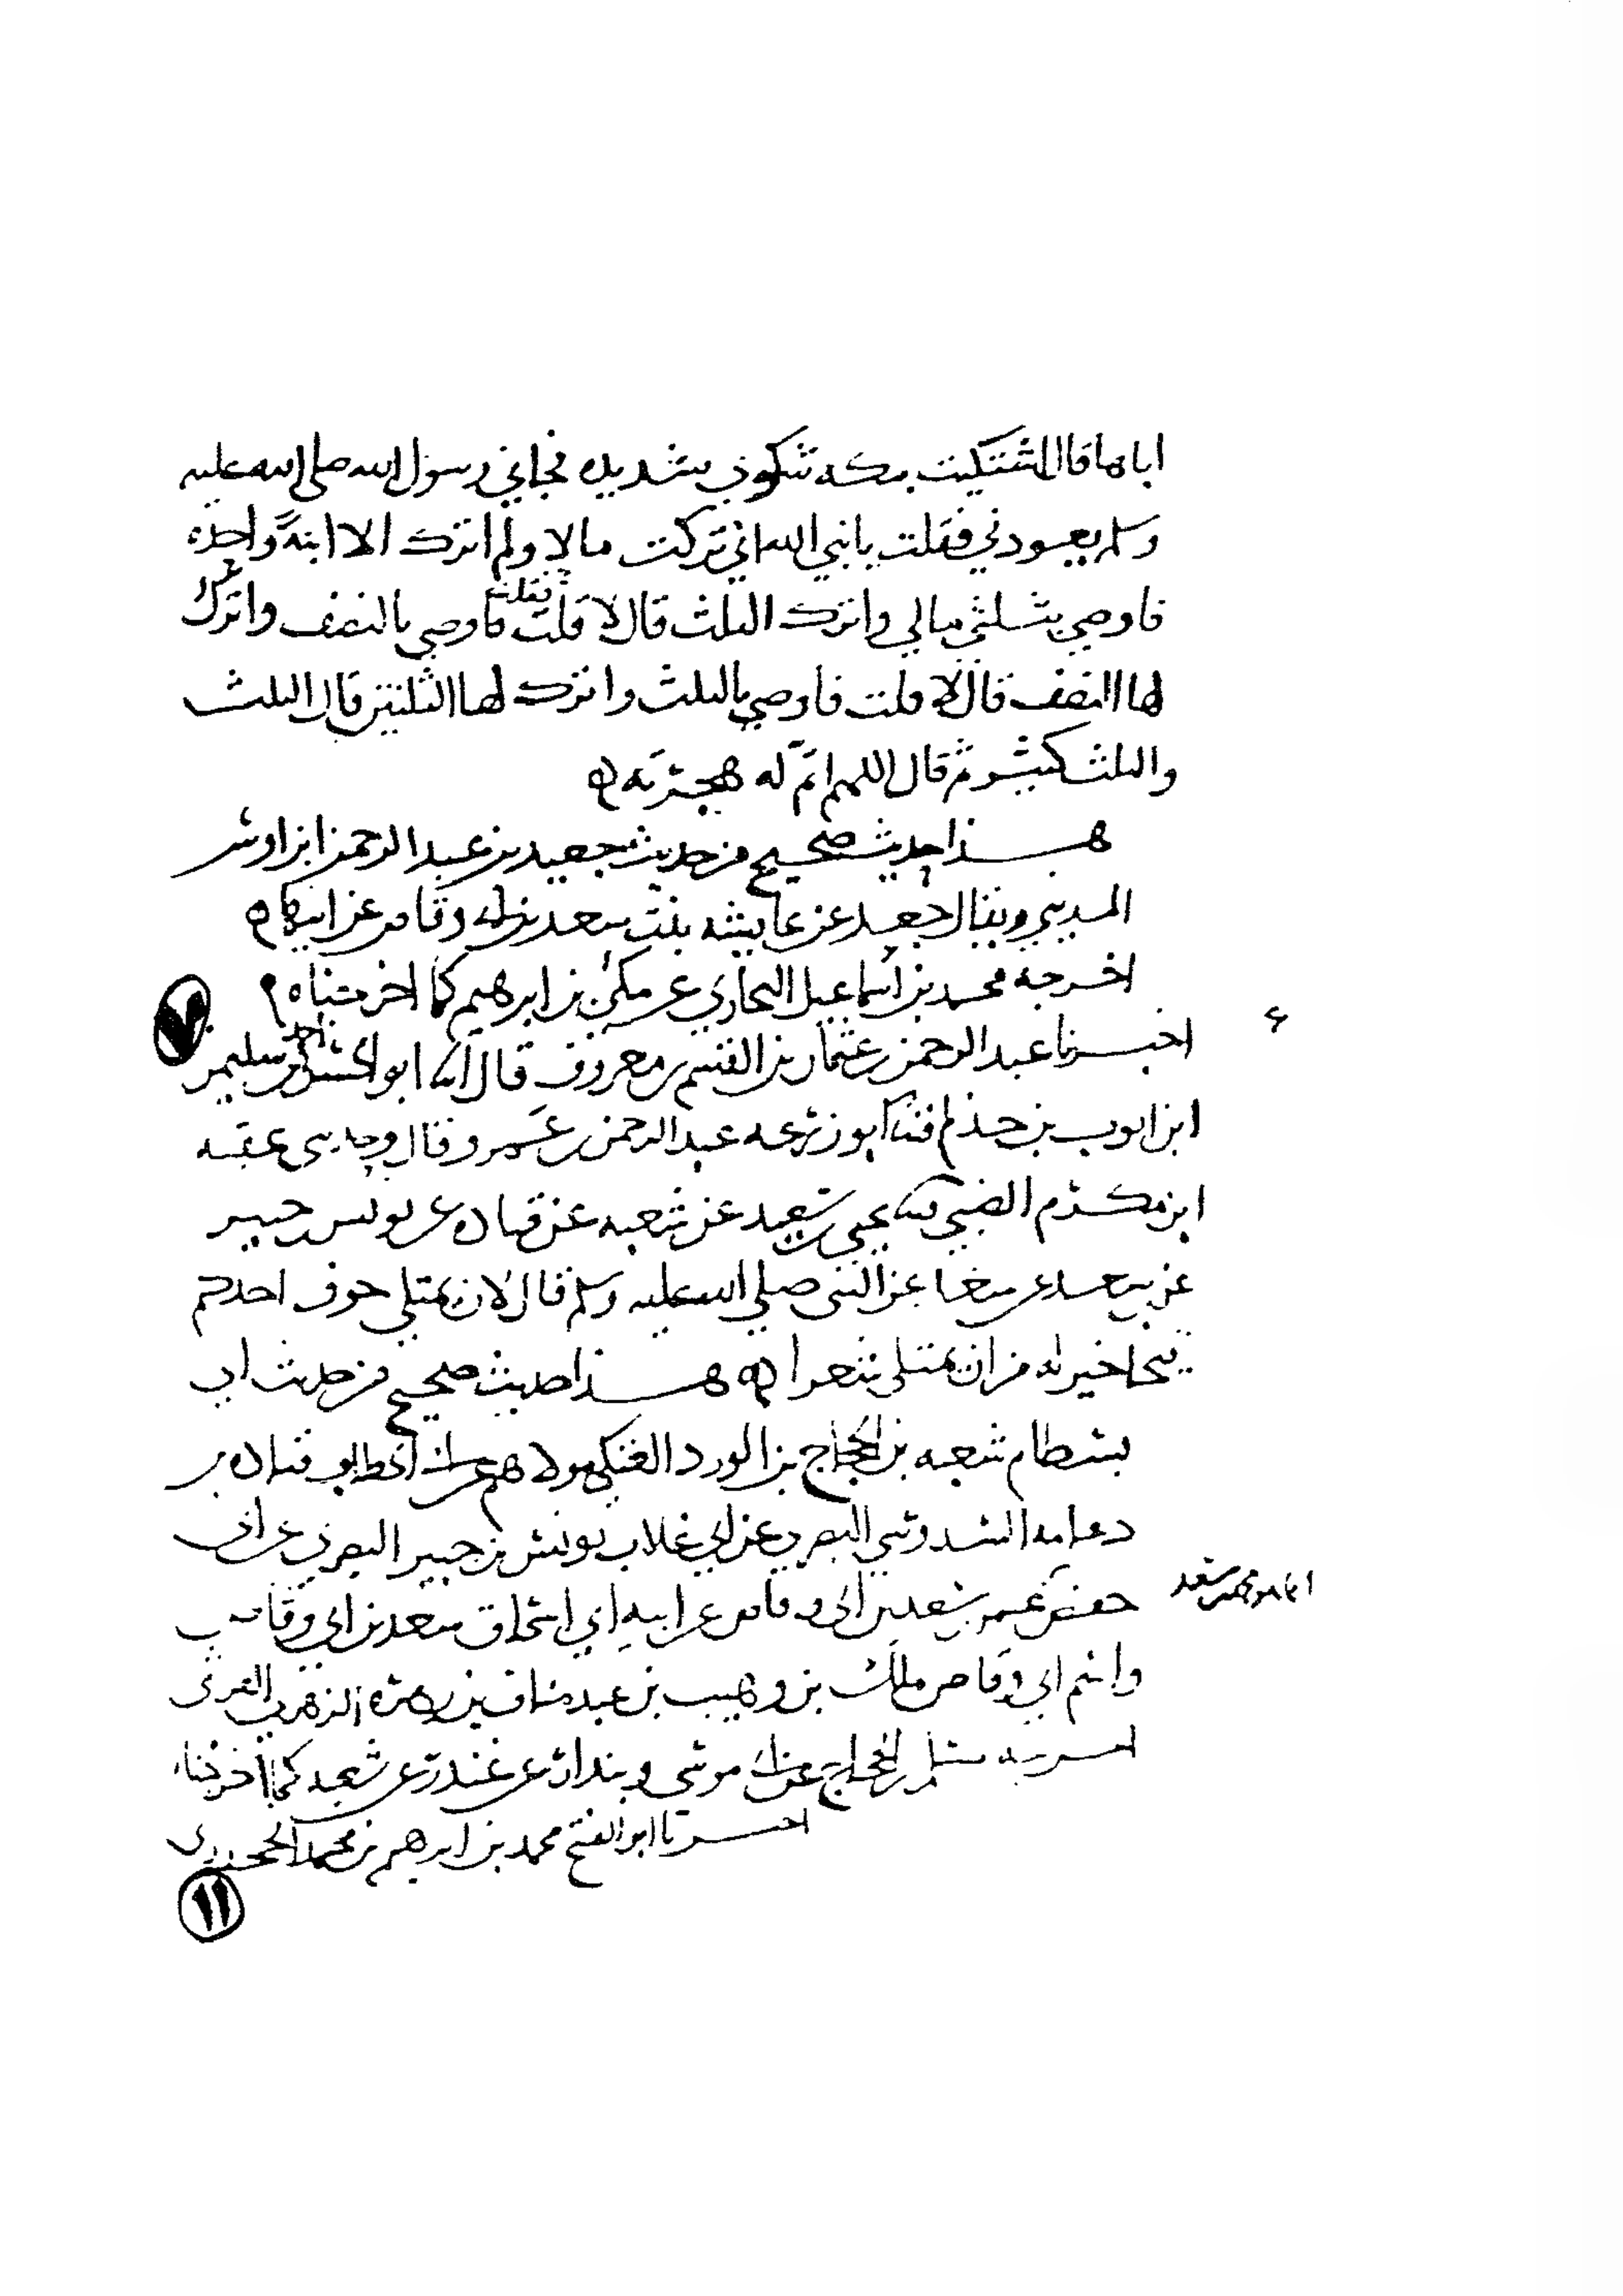 اباها قال اشتكيت بمكه شكوى شديده فجاني رسول الله صلى الله عليه
وسلم يعودني فقلت يا نبي الله اني تركت مالا ولم اترك الا ابنةً واحده
فاوصي بثلثي مالي واترك الثلث قال لا قلت فاوصي بالنصف واترك
فقلت
لها النصف قال لا قلت فاوصي بالثلث واترك لها الثلثين قال الثلث
والثلث كثير ثم قال اللهم اتم له هجرته
هذا حديث صحيح من حديث جعيد بن عبد الرحمن ابن اوس
المديني ويقال جعد عن عايشه بنت سعد بن ابي وقاص عن ابيها
اخرجه محمد بن اسماعيل البخاري عن مكي بن ابرهيم كما اخرجناه
٧
اخبرنا عبد الرحمن بن عثمان بن القسم بن معروف قال ابنا ابو الحسن احمد بن سليمن
ابن ايوب بن حذلم ثنا ابو زرعه عبد الرحمن بن عمرو قال وحدثني عقبه
ابن مكرم الضبي ثنا يحيى بن سعيد عن شعبه عن قتاده عن يونس بن جبير
عن بن سعد عن سعد عن النبي صلى الله عليه وسلم قال لان يمتلي جوف احدكم
قيحا خير له من ان يمتلي شعرا هذا حديث صحيح من حديث ابي
بسطام شعبه بن الحجاج بن الورد العتكي مولاهم عن ابي الخطاب قتاده بن
دعامه السدوسي البصري عن ابي غلاب يونس بن جبير البصري عن ابي
حفص عمر بن سعد بن ابي وقاص عن ابيه ابي اسحاق سعد بن ابي وقاص
انما هو محمد بن سعد
واسم ابي وقاص ملك بن وهيب بن عبد مناف بن زهره الزهري القرشي
اخرجه مسلم بن الحجاج عن ابي موسى وبندار عن غندر عن شعبه كما اخرجناه
اخبرنا ابو الفتح محمد بن ابرهيم بن محمد الجحدري
١١